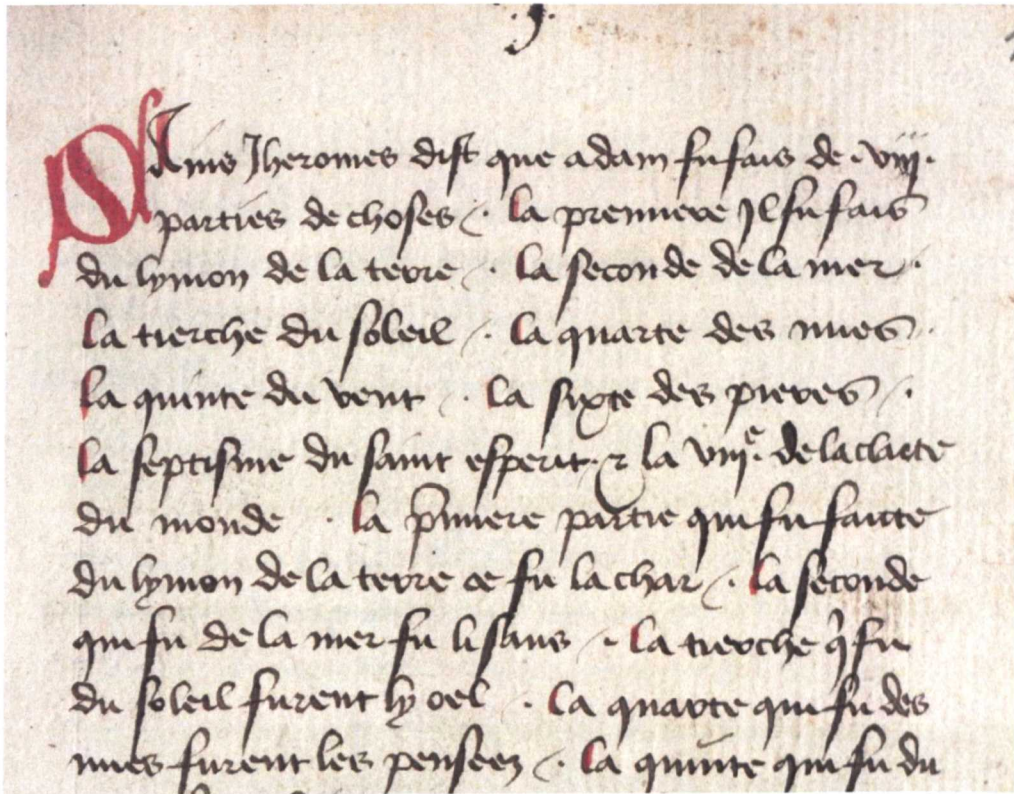 .j.
SAins Jheromes dist que adam fu fais de .viij.
parties de choses /. la premiere Jl fu fais
du lymon de la terre /. la seconde de la mer.
la tierche du soleil /. la quarte des nues.
la quinte du vent /. la sixte des pieres /.
la septisme du saint esperit. ⁊ la viijᵉ. de la clarte
du monde . la p̃miere partie qui fu faicte
du lymon de la terre ce fu la char /. la seconde
qui fu de la mer fu li sans /. la tierche q̉ fu
du soleil furent ly oel . la quarte qui fu des
nues furent les pensees /. la quinte qui fu du